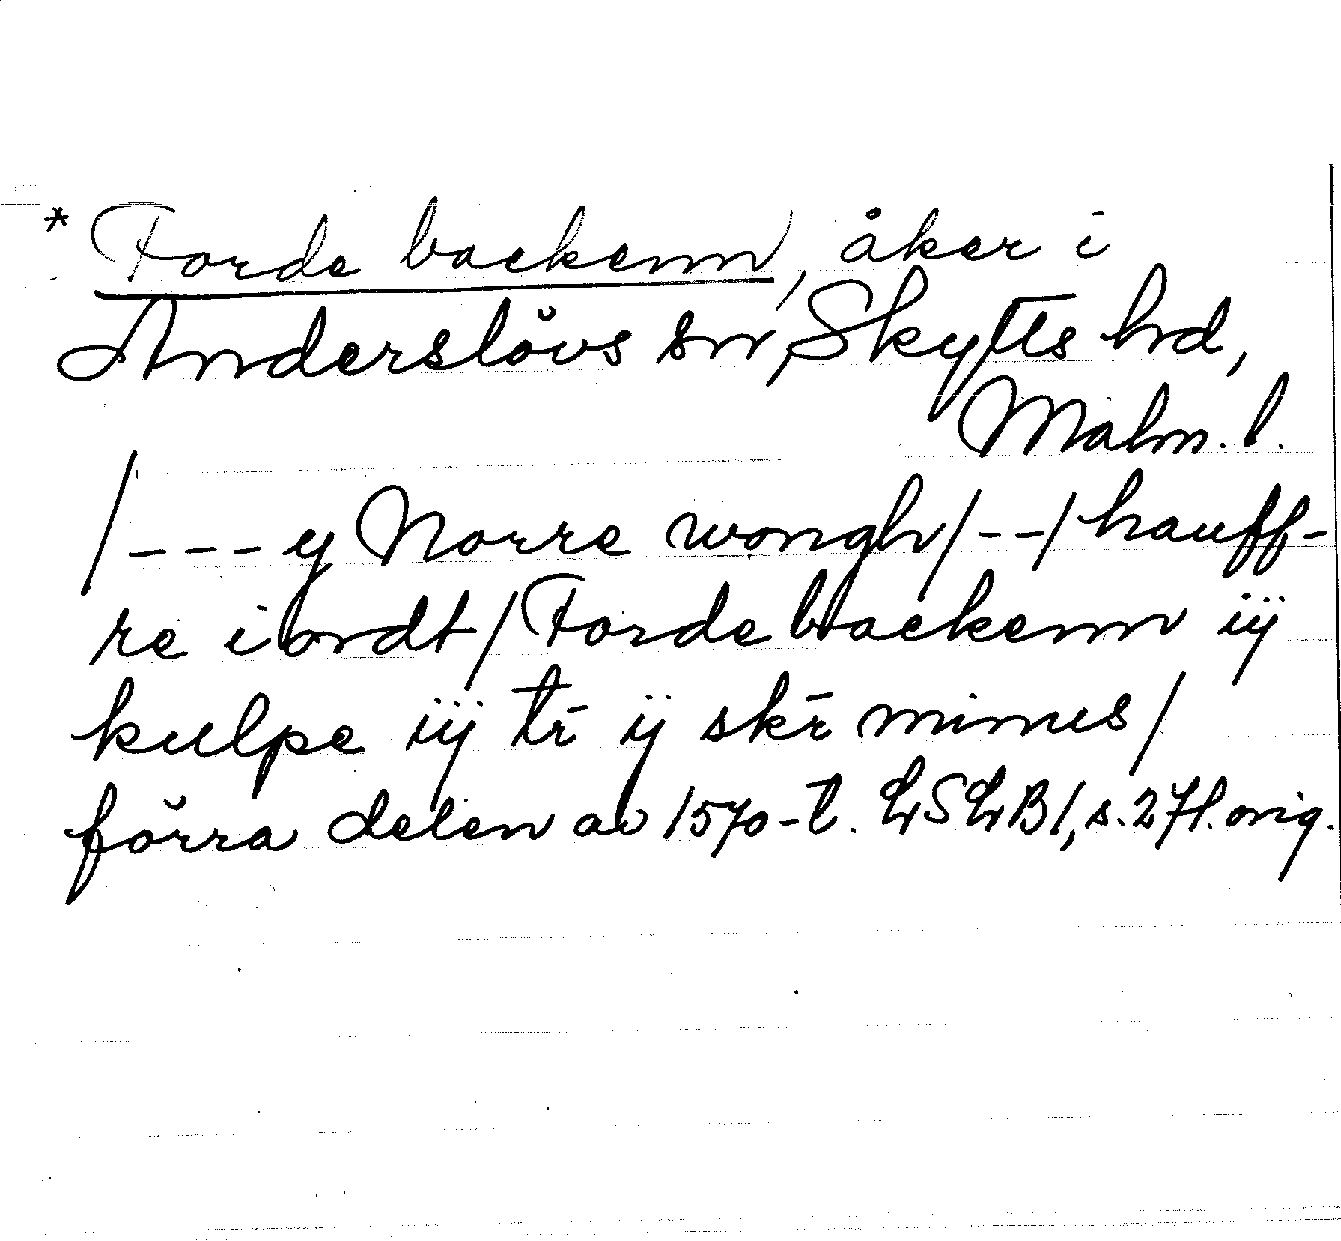 * Forde backenn, åker i
Anderslövs sn, Skytts hd,
Malm. l.
/--- y Norre wongh/--/hauff-
re iordt/Forde backenn iij
kulpe iij tr̄ ij skr̄ minus/
förra delen av 1570-t. LSLB1, s. 271. orig.